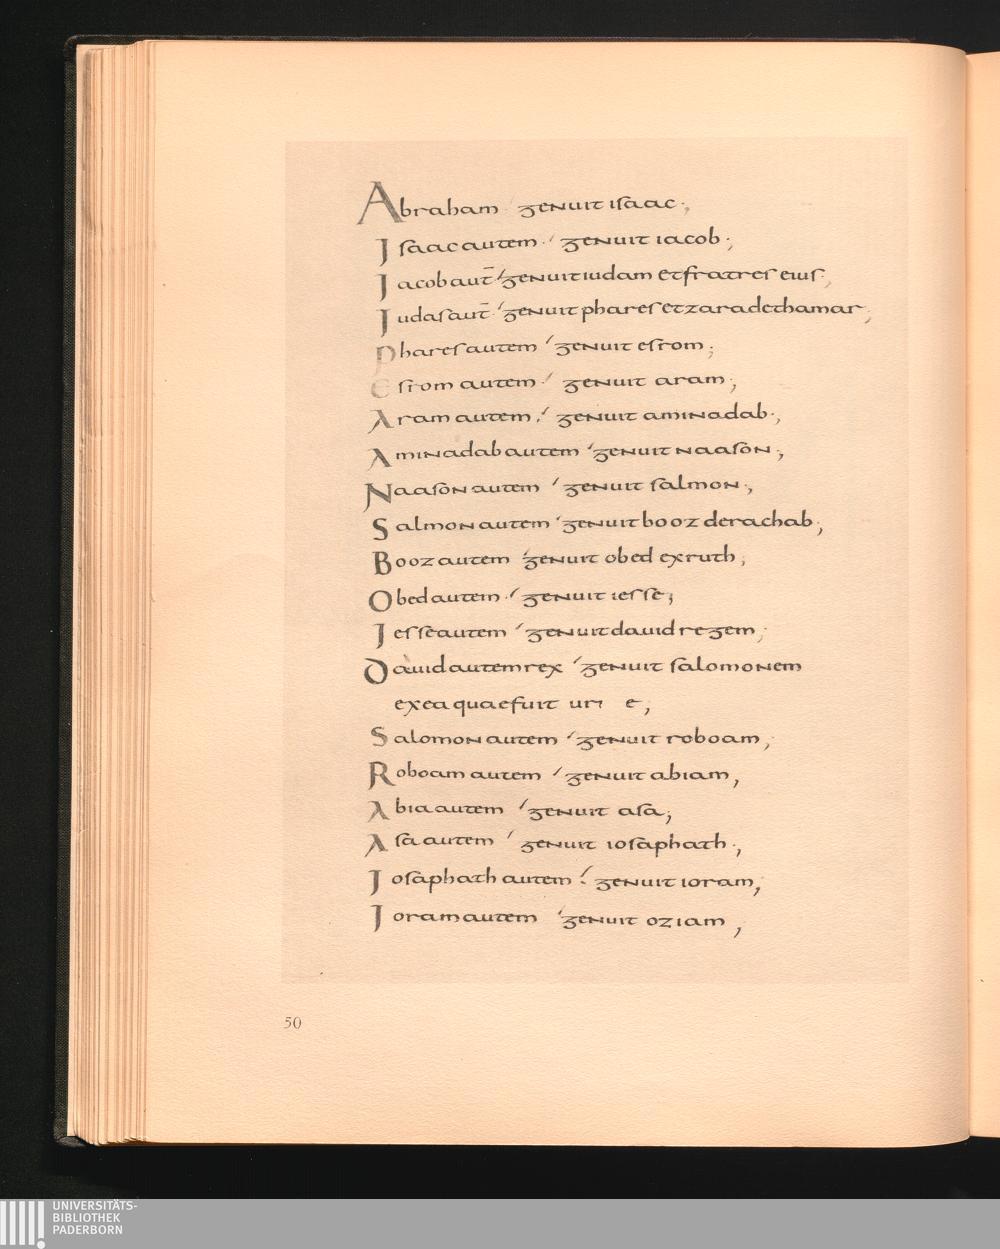 Abraham genuit isaac;
Isaac autem genuit iacob;
Iacob aut̄ genuit iudam et fratres eius;
Iudas aut̄ genuit phares et zara de thamar;
Phares autem genuit esrom;
Esrom autem genuit aram;
Aram autem genuit aminadab;
Aminadab autem genuit naason;
Naason autem genuit salmon;
Salmon autem genuit booz de rachab;
Booz autem genuit obed ex ruth;
Obed autem genuit iesse;
Iesse autem genuit dauid regem;
Dauid autem rex genuit salomonem
ex ea quae fuit uri e;
Salomon autem genuit roboam;
Roboam autem genuit abiam;
Abia autem genuit asa;
Asa autem genuit iosaphath;
Iosaphath autem genuit ioram;
Ioram autem genuit oziam;
50
UNIVERSITÄTS-
BIBLIOTHEK
PADERBORN